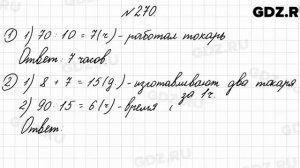 №270
GDZ.RU
① 1) 70 : 10 = 7 (ч) - работал токарь
Ответ: 7 часов.
② 1) 8 + 7 = 15 (д.) - изготавливают два токаря
за 1 ч.
2) 90 : 15 = 6 (ч) - время
Ответ:
GDZ.RU